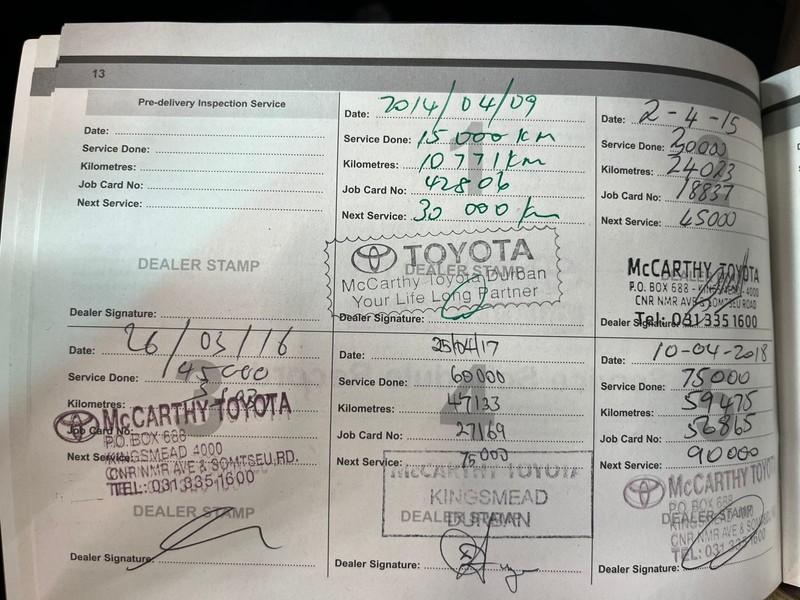 13
Pre-delivery Inspection Service
Date:
Service Done:
Kilometres:
Job Card No:
Next Service:
DEALER STAMP
Dealer Signature:
1
Date: 2014/04/09
Service Done: 15 000 KM
Kilometres: 10 771 km
Job Card No: 42806
Next Service: 30 000 km
TOYOTA
DEALER STAMP
McCarthy Toyota Durban
Your Life Long Partner
Dealer Signature:
Date: 2-4-15
Service Done: 30000
Kilometres: 24023
Job Card No: 18837
Next Service: 45000
McCARTHY TOYOTA
P.O. BOX 688 - KINGSMEAD - 4000
CNR NMR AVE & SOMTSEU ROAD
Tel: 031 335 1600
Dealer Signature:
3
Date: 26/03/16
Service Done: 45000
Kilometres:
McCARTHY TOYOTA
Job Card No:
P.O. BOX 688
Next Service:
KINGSMEAD 4000
CNR NMR AVE & SOMTSEU RD.
TEL: 031 335 1600
DEALER STAMP
Dealer Signature:
4
Date: 25/04/17
Service Done: 60000
Kilometres: 47133
Job Card No: 27169
Next Service: 75000
McCARTHY TOYOTA
KINGSMEAD
DEALER STAMP
DURBAN
Dealer Signature:
Date: 10-04-2018
Service Done: 75000
Kilometres: 59475
Job Card No: 56865
Next Service: 90000
McCARTHY TOYOTA
P.O. BOX 688
DEALER STAMP
KINGSMEAD 4000
CNR NMR AVE & SOMTSEU
TEL: 031 335 1600
Dealer Signature: